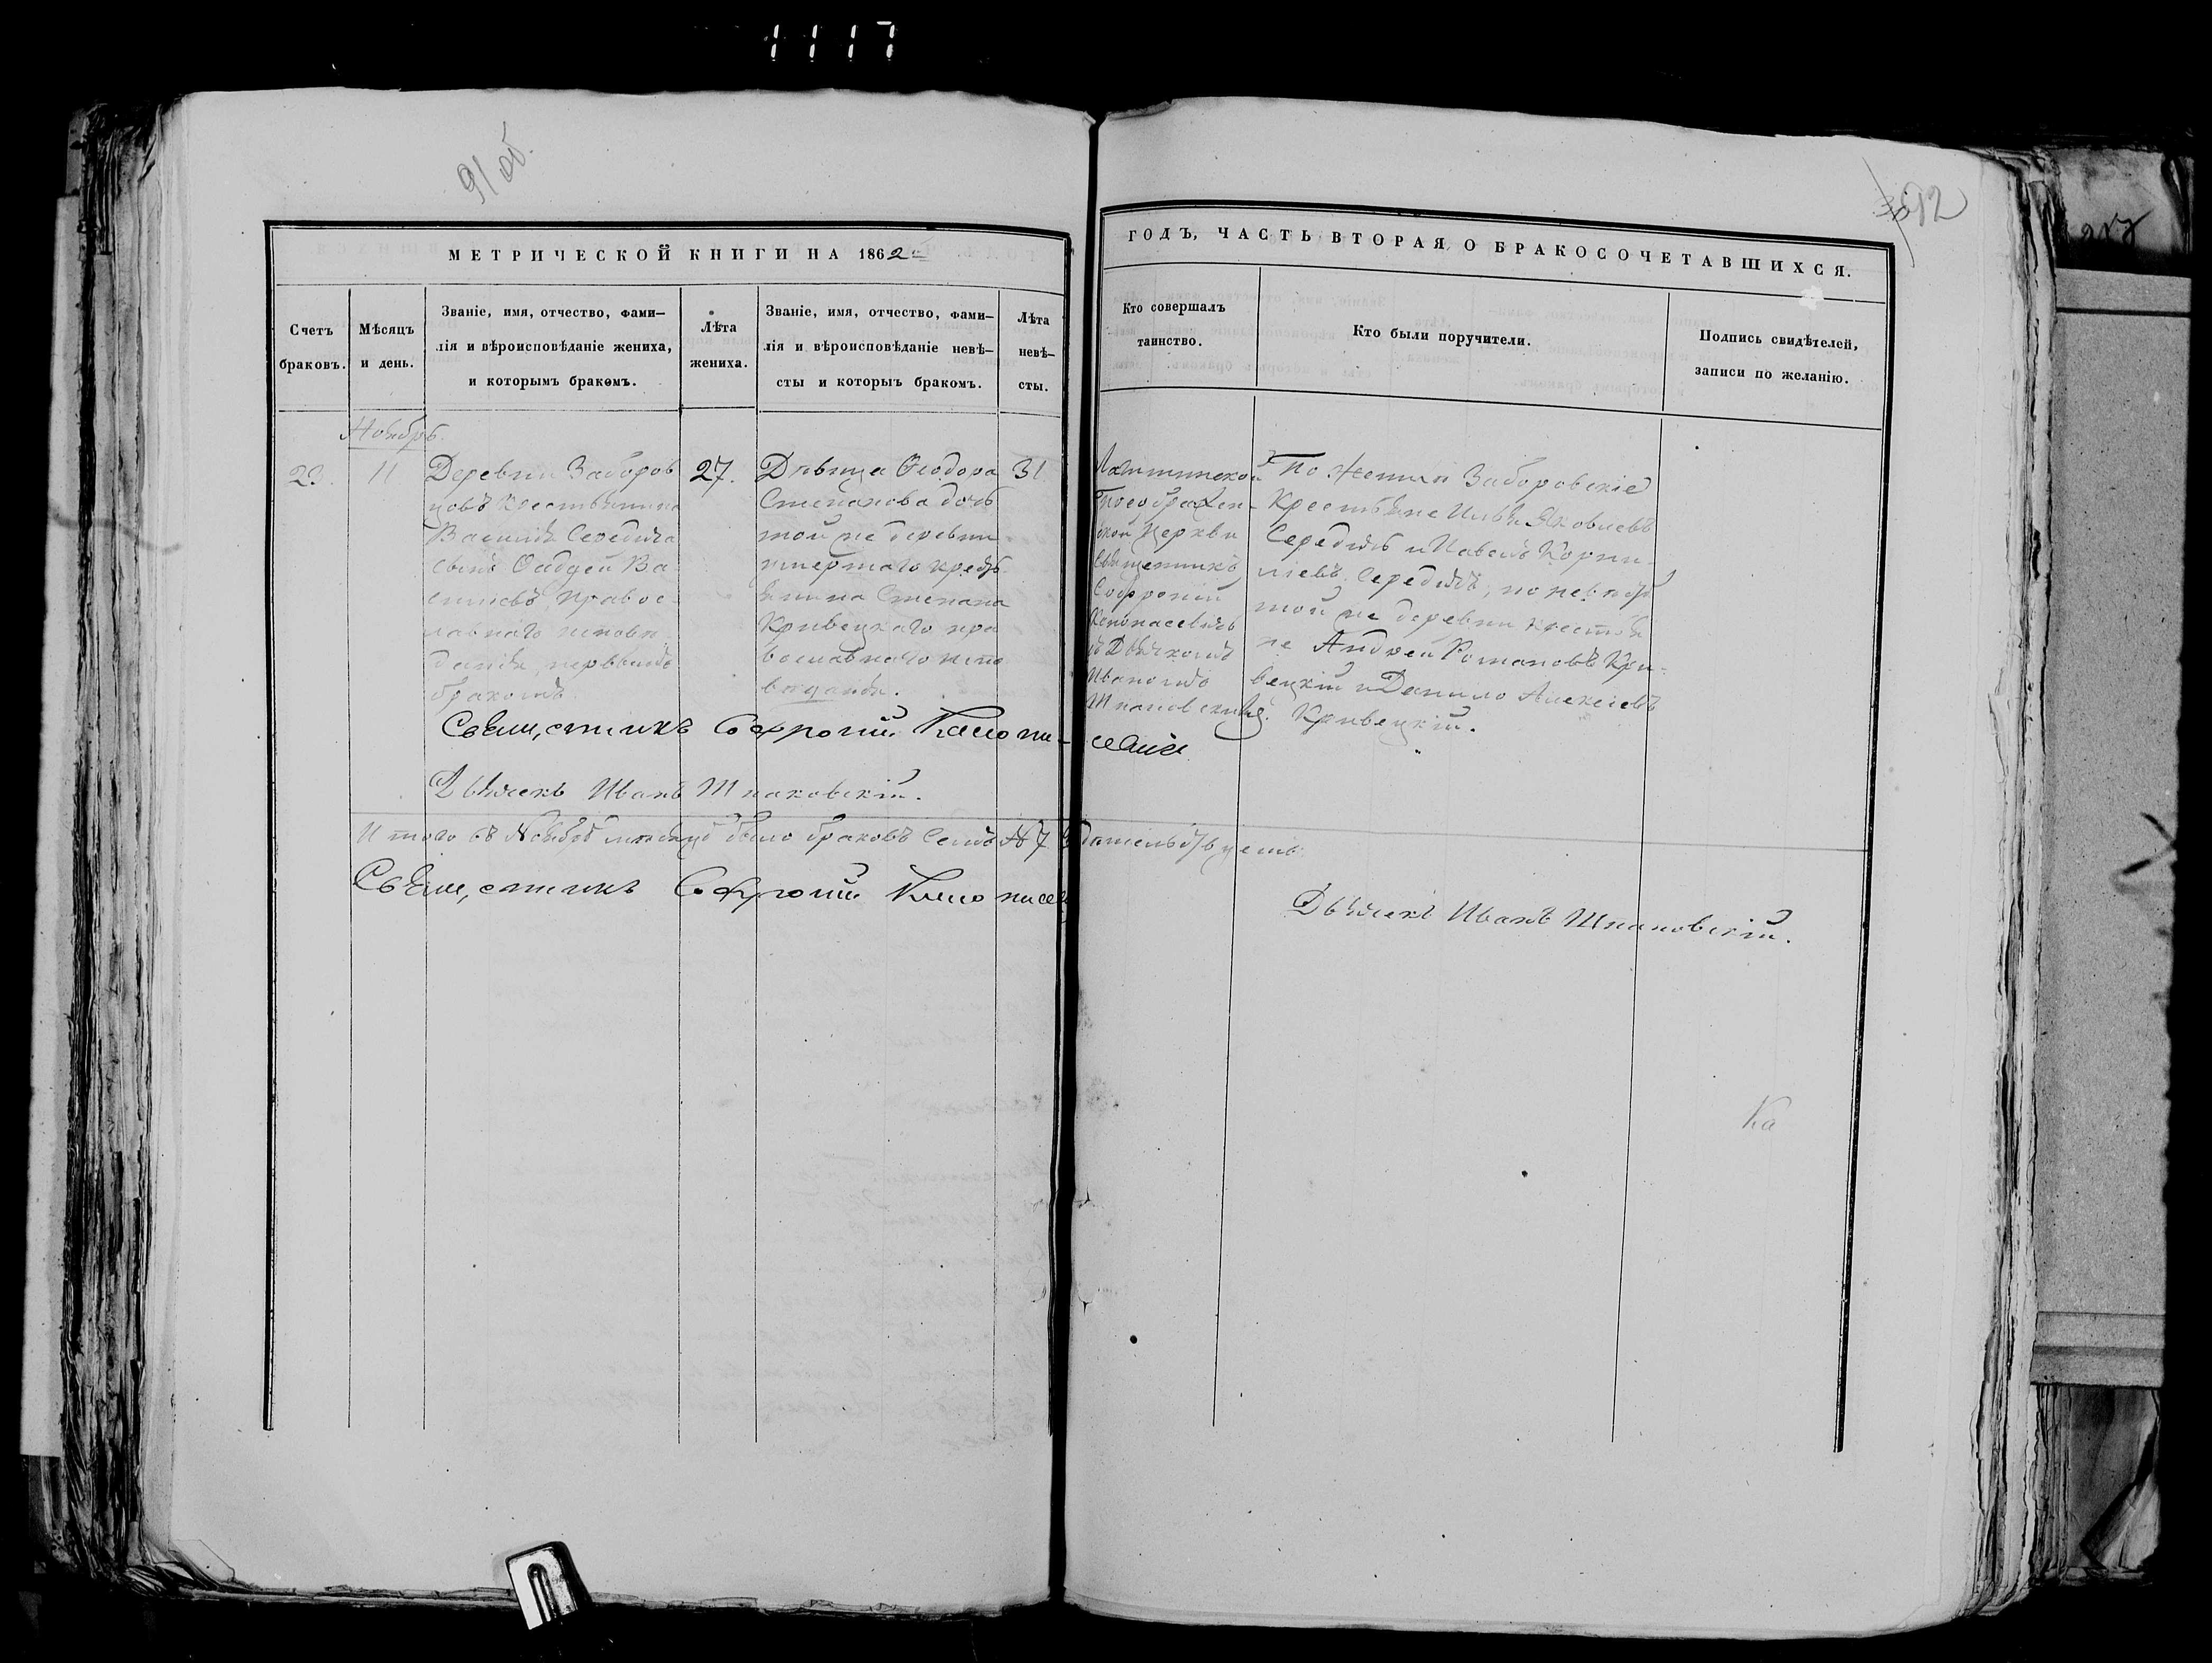 1117
91 об.
92
МЕТРИЧЕСКОЙ КНИГИ НА 1862
ГОДЪ, ЧАСТЬ ВТОРАЯ, О БРАКОСОЧЕТАВШИХСЯ.
Счетъ
браковъ.
Мѣсяцъ
и день.
Званіе, имя, отчество, фами-
лія и вѣроисповѣданіе жениха,
и которымъ бракомъ.
Лѣта
жениха.
Званіе, имя, отчество, фами-
лія и вѣроисповѣданіе невѣ-
сты и которыъ бракомъ.
Лѣта
невѣ-
сты.
Кто совершалъ
таинство.
Кто были поручители.
Подпись свидѣтелей,
записи по желанію.
Ноябрь
23.
11
Деревни Заборов
цовъ крестьянина
Василія Середича
сынъ Фаддей Ва-
силіевъ, правос-
лавнаго исповѣ-
данія, первымъ
бракомъ
27.
Дѣвица Ѳеодора
Степанова дочь
той же деревни
умершаго кресть
янина Степана
Кривецкаго пра
вославнаго испо
веданія.
31
Преображен-
ской Церкви
Священникъ
Софроній
съ Дьячкомъ
Иваномъ
По женихѣ Заборовскіе
крестьяне Илья Яковлевъ
Середичъ и Павелъ Корни-
ліевъ Середичъ, по невѣстѣ
той же деревни крестья
не Андрей Романовъ Кри-
вецкій и Данило Алексіевъ
Кривецкій.
Священникъ Софроній
Дьячекъ Иванъ Шпаковскій.
Итого въ Ноябрѣ мѣсяцѣ было браковъ семь № 7
Священникъ Софроній
Дьячекъ Иванъ Шпаковскій.
Ка